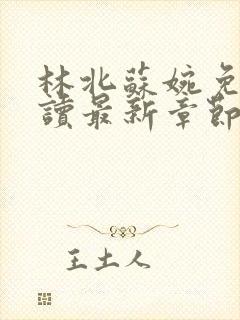 林北蘇婉免
讀最新章節
王土人